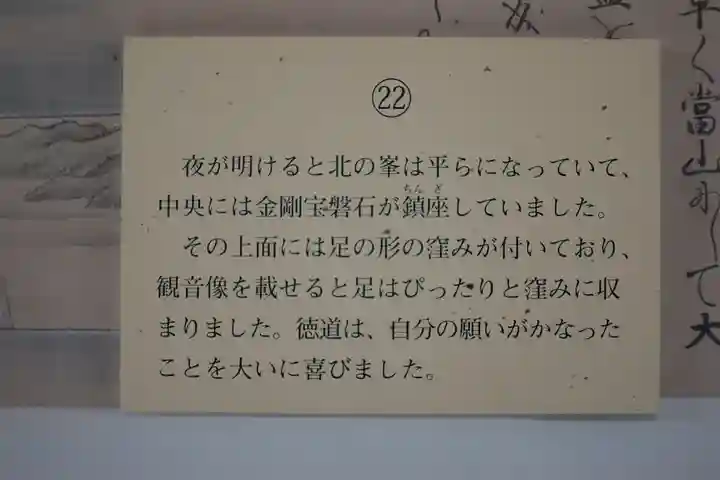 ㉒
夜が明けると北の峯は平らになっていて、
中央には金剛宝磐石が鎮座していました。
ちんざ
その上面には足の形の窪みが付いており、
観音像を載せると足はぴったりと窪みに収
まりました。徳道は、自分の願いがかなった
ことを大いに喜びました。
早く當山
して大